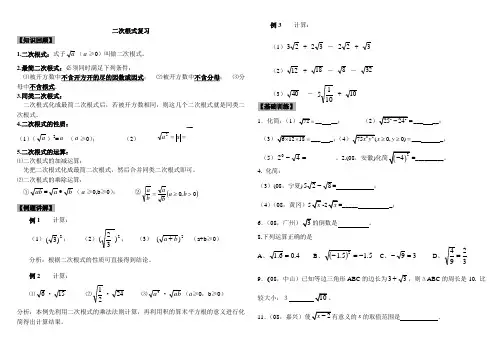 二次根式复习
【知识回顾】
1.二次根式：式子√a（a≥0）叫做二次根式。
2.最简二次根式：必须同时满足下列条件：
⑴被开方数中不含开方开的尽的因数或因式； ⑵被开方数中不含分母； ⑶分
母中不含根式。
3.同类二次根式：
二次根式化成最简二次根式后，若被开方数相同，则这几个二次根式就是同类二
次根式。
4.二次根式的性质：
（1）(√a)²=a（a≥0）； （2） √a²=|a|=
5.二次根式的运算：
⑴二次根式的加减运算：
先把二次根式化成最简二次根式，然后合并同类二次根式即可。
⑵二次根式的乘除运算：
①√ab=√a•√b（a≥0,b≥0）； ②√(a/b)=√a/√b(a≥0,b>0)
【例题讲解】
例1 计算：
（1）(√3)²； （2）(√(2/3))²； （3）(√(a+b))² (a+b≥0)
分析：根据二次根式的性质可直接得到结论。
例2 计算：
⑴√6·√15 ⑵√(1/2)·√24 ⑶√a³·√ab（a≥0，b≥0）
分析：本例先利用二次根式的乘法法则计算，再利用积的算术平方根的意义进行化
简得出计算结果。
例3 计算：
（1）3√2 + 2√3 － 2√2 + √3
（2）√12 + √18 － √8 － √32
（3）√40 － 5√(1/10) + √10
【基础训练】
1．化简：（1）√72=____； （2）√(25²−24²)=____；
（3）√(6×12×18)=____；（4）√(75x³y²)(x≥0,y≥0)=____；
（5）2⁰−√4=____。 2.(08，安徽)化简√(−4)²=____。
4. 化简：
（3）(08，宁夏)5√2−√8=____；
（4）（08，黄冈）5√x-2√x=____；
6．（08，广州）√3的倒数是 。
8.下列运算正确的是
A、√1.6=0.4 B、√(−1.5)²=−1.5 C、−√9=3 D、√(4/9)=2/3
9．（08，中山）已知等边三角形ABC的边长为3+√3，则ΔABC的周长是 10. 比
较大小：3 √10。
11．（08，嘉兴）使√(x−2)有意义的x的取值范围是 ．